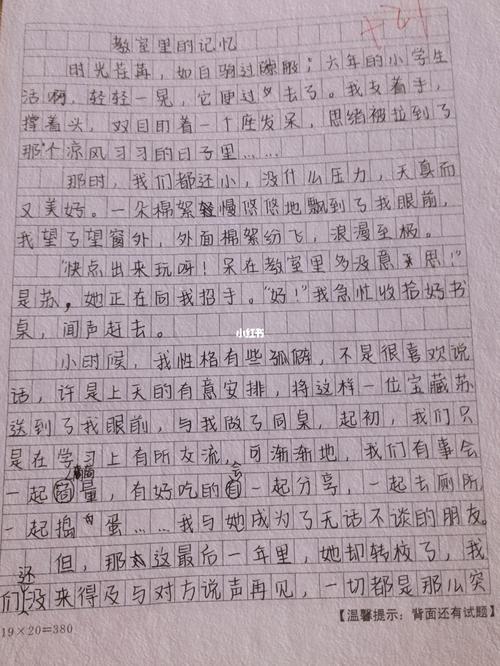 教室里的记忆
时光荏苒,如白驹过隙般;六年的小学生
活啊,轻轻一晃,它便过去了。我支着手,
撑着头,双目盯着一个座发呆,思绪被拉到了
那个凉风习习的日子里……
那时,我们都还小,没什么压力,天真而
又美好。一朵棉絮轻慢悠悠地飘到了我眼前,
我望了望窗外,外面棉絮纷飞,浪漫至极。
“快点出来玩呀!呆在教室里多没意思!”
是苏,她正在向我招手。“好!”我急忙收拾好书
桌,闻声赶去。
小红书
小时候,我性格有些孤僻,不是很喜欢说
话,许是上天的有意安排,将这样一位宝藏苏
送到了我眼前,与我做了同桌,起初,我们只
是在学习上有所交流,可渐渐地,我们有事会
一起商量,有好吃的会一起分享,一起去厕所,
一起捣蛋……我与她成为了无话不谈的朋友。
但,那这最后一年里,她却转校了,我
们还没来得及与对方说声再见,一切都是那么突
19×20=380
【温馨提示:背面还有试题】